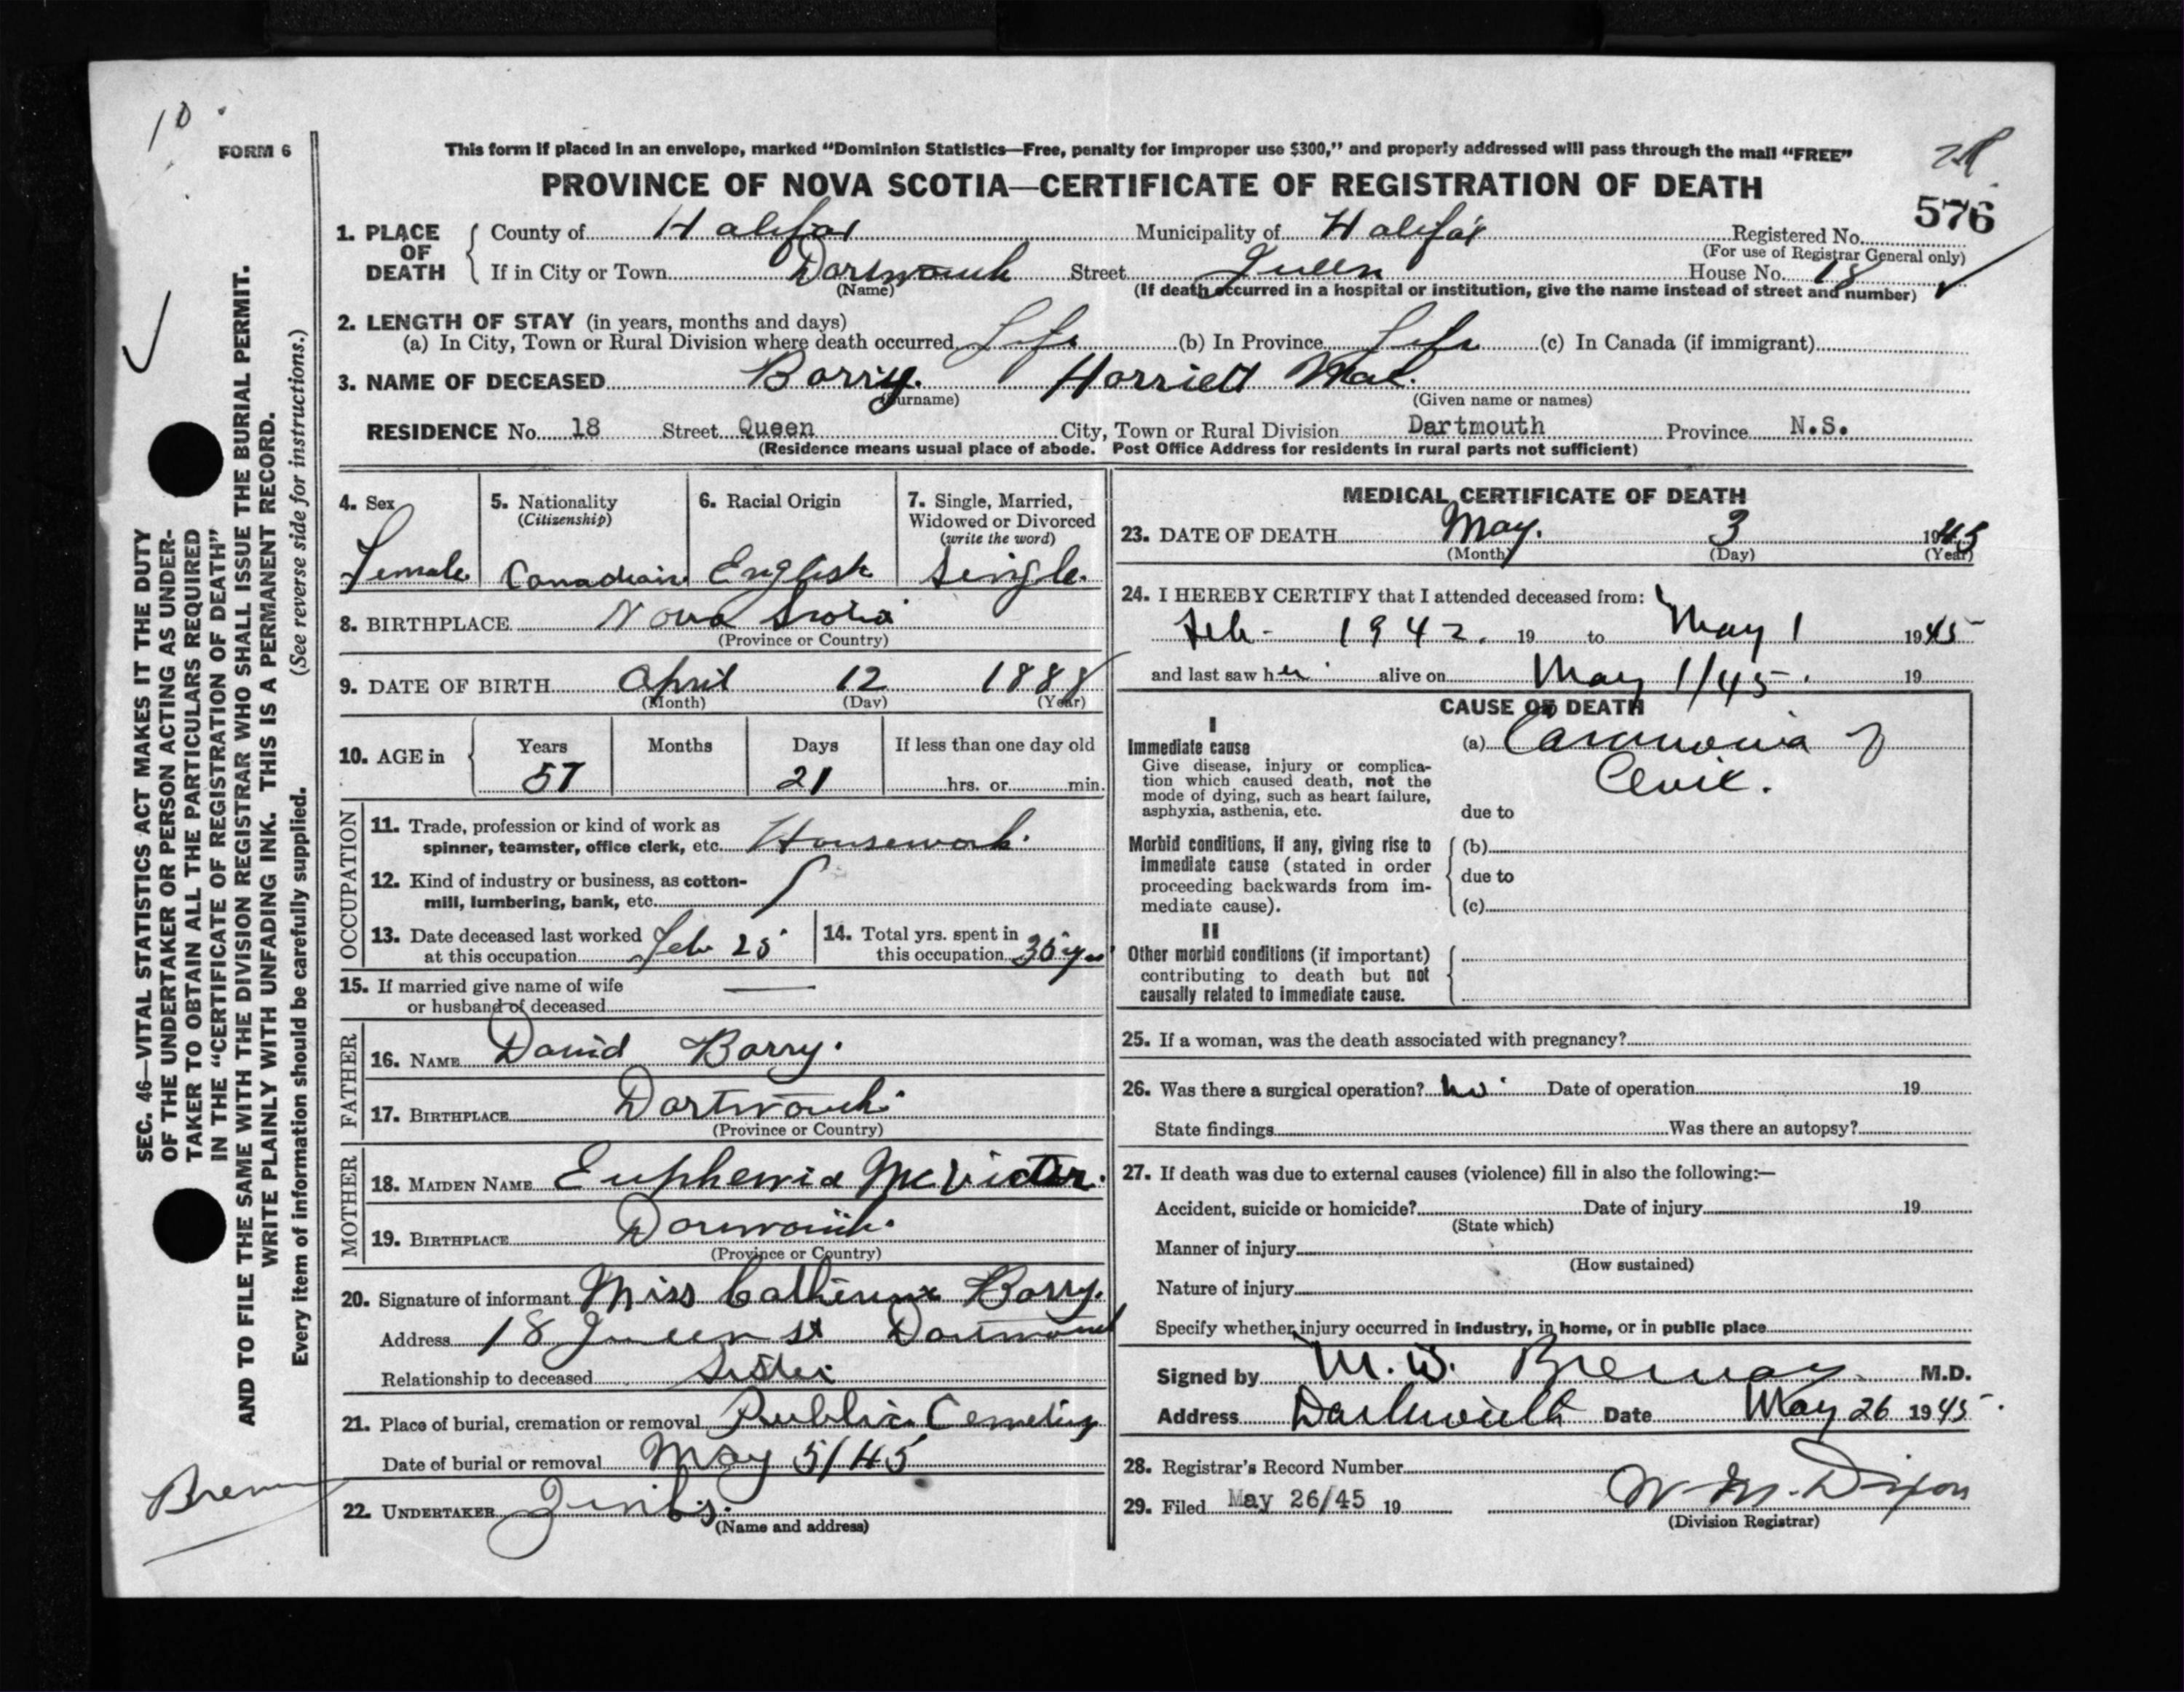 10
FORM 6
This form if placed in an envelope, marked "Dominion Statistics—Free, penalty for improper use $300," and properly addressed will pass through the mail "FREE"
PROVINCE OF NOVA SCOTIA—CERTIFICATE OF REGISTRATION OF DEATH
576
1. PLACE OF DEATH County of Halifax Municipality of Halifax Registered No.
(For use of Registrar General only)
If in City or Town Dartmouth Street Queen House No. 18
(Name) (If death occurred in a hospital or institution, give the name instead of street and number)
2. LENGTH OF STAY (in years, months and days)
(a) In City, Town or Rural Division where death occurred Life (b) In Province Life (c) In Canada (if immigrant)
3. NAME OF DECEASED Barry. Harriett Mae.
(Surname) (Given name or names)
RESIDENCE No. 18 Street Queen City, Town or Rural Division Dartmouth Province N.S.
(Residence means usual place of abode. Post Office Address for residents in rural parts not sufficient)
4. Sex
Female
5. Nationality
(Citizenship)
Canadian
6. Racial Origin
English
7. Single, Married,
Widowed or Divorced
(write the word)
Single.
8. BIRTHPLACE Nova Scotia
(Province or Country)
9. DATE OF BIRTH April 12 1888
(Month) (Day) (Year)
10. AGE in Years Months Days If less than one day old
57 21 hrs. or min.
OCCUPATION
11. Trade, profession or kind of work as
spinner, teamster, office clerk, etc. Housework.
12. Kind of industry or business, as cotton-
mill, lumbering, bank, etc.
13. Date deceased last worked
at this occupation Feb 25
14. Total yrs. spent in
this occupation 35 yrs
15. If married give name of wife
or husband of deceased —
FATHER
16. NAME David Barry.
17. BIRTHPLACE Dartmouth.
(Province or Country)
MOTHER
18. MAIDEN NAME Euphemia McVictar.
19. BIRTHPLACE Dartmouth.
(Province or Country)
20. Signature of informant Miss Catherine Barry.
Address 18 Queen st Dartmouth
Relationship to deceased Sister
21. Place of burial, cremation or removal Public Cemetery
Date of burial or removal May 5/45
22. UNDERTAKER
(Name and address)
MEDICAL CERTIFICATE OF DEATH
23. DATE OF DEATH May. 3 1945
(Month) (Day) (Year)
24. I HEREBY CERTIFY that I attended deceased from:
Feb - 1942. 19 to May 1 1945
and last saw her alive on May 1/45. 19
CAUSE OF DEATH
I
Immediate cause
Give disease, injury or complica-
tion which caused death, not the
mode of dying, such as heart failure,
asphyxia, asthenia, etc.
(a) Carcinoma of
Cervix.
due to
Morbid conditions, if any, giving rise to
immediate cause (stated in order
proceeding backwards from im-
mediate cause).
(b)
due to
(c)
II
Other morbid conditions (if important)
contributing to death but not
causally related to immediate cause.
25. If a woman, was the death associated with pregnancy?
26. Was there a surgical operation? no Date of operation 19
State findings Was there an autopsy?
27. If death was due to external causes (violence) fill in also the following:—
Accident, suicide or homicide? Date of injury 19
(State which)
Manner of injury
(How sustained)
Nature of injury
Specify whether injury occurred in industry, in home, or in public place
Signed by M. W. M.D.
Address Dartmouth Date May 26 1945
28. Registrar's Record Number
29. Filed May 26/45 19 W M. Dixon
(Division Registrar)
SEC. 46—VITAL STATISTICS ACT MAKES IT THE DUTY
OF THE UNDERTAKER OR PERSON ACTING AS UNDER-
TAKER TO OBTAIN ALL THE PARTICULARS REQUIRED
IN THE "CERTIFICATE OF REGISTRATION OF DEATH"
AND TO FILE THE SAME WITH THE DIVISION REGISTRAR WHO SHALL ISSUE THE BURIAL PERMIT.
WRITE PLAINLY WITH UNFADING INK. THIS IS A PERMANENT RECORD.
Every item of information should be carefully supplied. (See reverse side for instructions.)